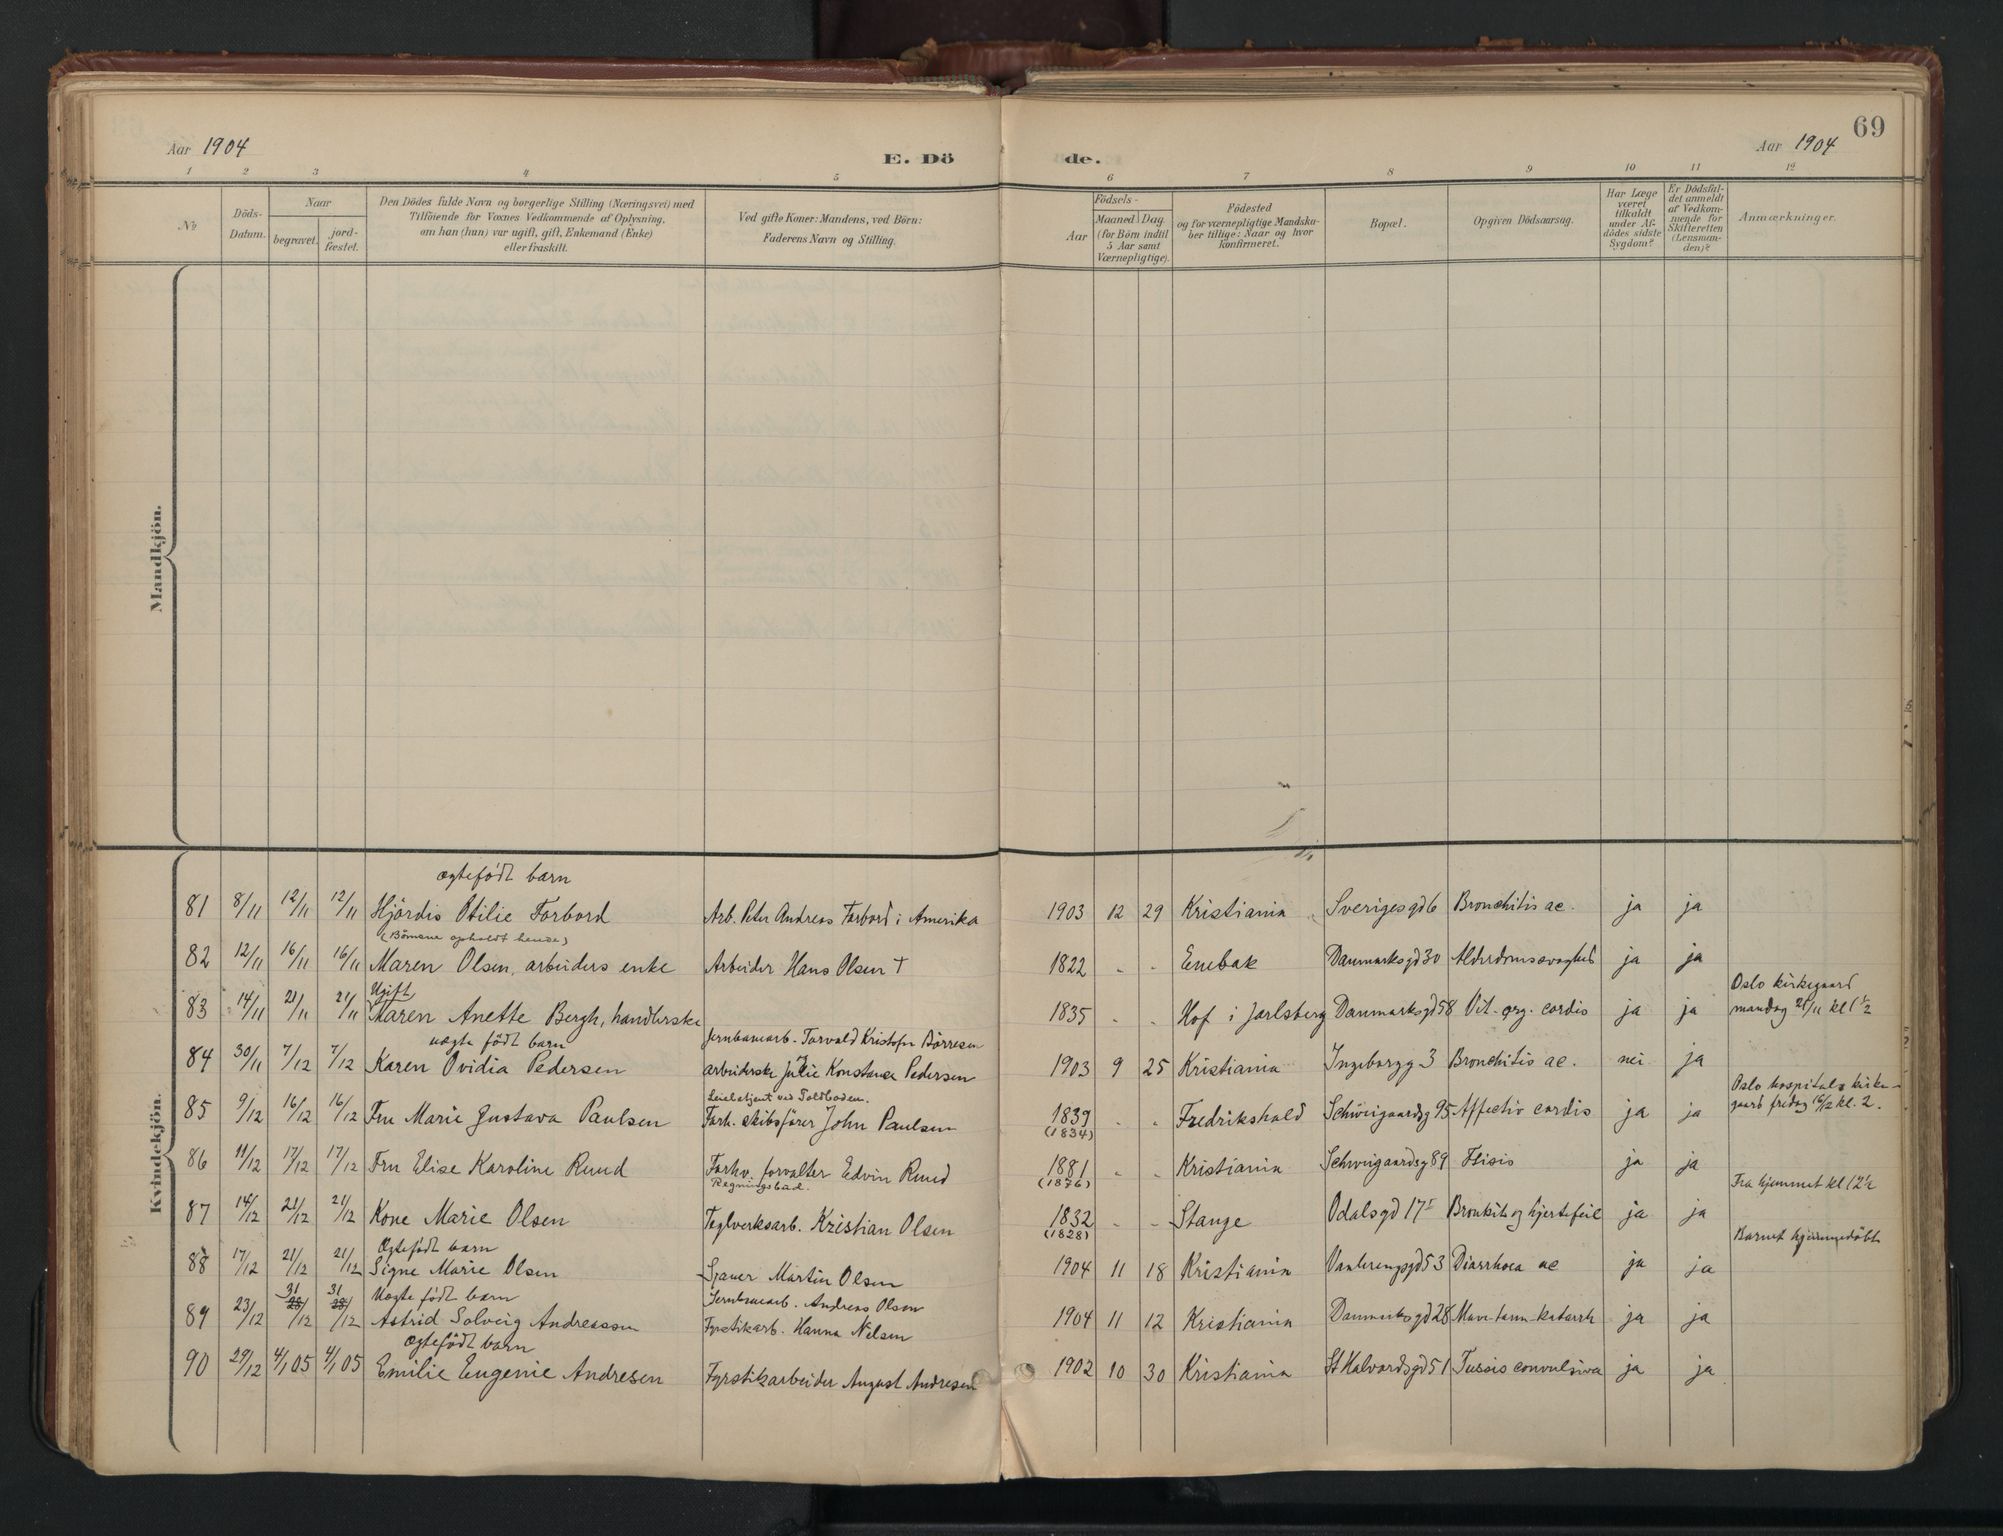 69
Aar 1904
E. Dö
de.
Aar 1904
1 2 3 4 5 6 7 8 9 10 11 12
No
Döds-
Datum.
Naar
begravet.
jord-
fæstet.
Den Dödes fulde Navn og borgerlige Stilling (Næringsvei) med
Tilföiende for Voxnes Vedkommende af Oplysning,
om han (hun) var ugift, gift, Enkemand (Enke)
eller fraskilt.
Ved gifte Koner: Mandens, ved Börn:
Faderens Navn og Stilling.
Födsels-
Aar
Maaned Dag
(for Börn indtil
5 Aar samt
Værnepligtige).
Födested
og for værnepligtige Mandsku-
ber tillige: Naar og hvor
konfirmeret.
Bopæl.
Opgiven Dödsaarsag.
Har Læge
været
tilkaldt
under Af-
dödes sidste
Sygdom?
Er Dödsfal-
det anmeldt
af Vedkom-
mende for
Skifteretten
(Lensman-
den)?
Anmærkninger.
Mandkjön.
Kvindekjön.
ægtefödt barn
81 8/11 12/11 12/11 Hjördis Otilie Forbord Arb. Peter Andreas Forbord i Amerika 1903 12 29 Kristiania Sverigesgd 6 Bronchitis ac. ja ja
82 12/11 16/11 16/11 Maren Olsen, arbeiders enke Arbeider Hans Olsen † 1822 - - Enebak Danmarksgd 30 Alderdomssvaghed ja ja
Ugift
83 14/11 21/11 21/11 Maren Anette Bergh, handlerske 1835 - - Hof i Jarlsberg Danmarksgd 58 Vit. org. cordis ja ja
Oslo kirkegaard
mandag 21/11 kl 1 1/2
uægte födt barn
Jernbanearb. Torvald Kristofer Börresen
84 30/11 7/12 7/12 Karen Ovidia Pedersen arbeiderske Julie Konstanse Pedersen 1903 9 25 Kristiania Ingeborgg 3 Bronchitis ac. nei ja
85 9/12 16/12 16/12 Fru Marie Gustava Paulsen Forh. skibsförer John Paulsen 1839 - - Fredrikshald Schweigaardsg 95 Affectio cordis ja ja
(1834)
Oslo hospitals kirke-
gaard fredag 16/12 kl. 2.
86 11/12 17/12 17/12 Fru Elise Karoline Ruud Forhv. forvalter Edvin Ruud 1881 - - Kristiania Schweigaardsg 89 Ftisis ja ja
(1876)
87 14/12 21/12 21/12 Kone Marie Olsen Teglverksarb. Kristian Olsen 1832 - - Stange Odalsgd 17 I Bronkit og hjertefeil ja ja
(1828)
Fra hjemmet kl 12 1/2
Ægtefödt barn
88 17/12 21/12 21/12 Signe Marie Olsen Sjauer Martin Olsen 1904 11 18 Kristiania Vaalerengsgd 53 Diarrhoea ac ja ja
Barnet hjemmedöbt
Uægte födt barn
Jernbanearb. Andreas Olsen
89 23/12 31/12 31/12 Astrid Solveig Andreassen Fyrstikarb. Hanna Nilsen 1904 11 12 Kristiania Danmarksgd 28 Mave tarm katarrh ja ja
ægtefödt barn
90 29/12 4/1 05 4/1 05 Emilie Eugenie Andresen Fyrstikarbeider August Andresen 1902 10 30 Kristiania St Halvardsgd 51 Tussis convulsiva ja ja